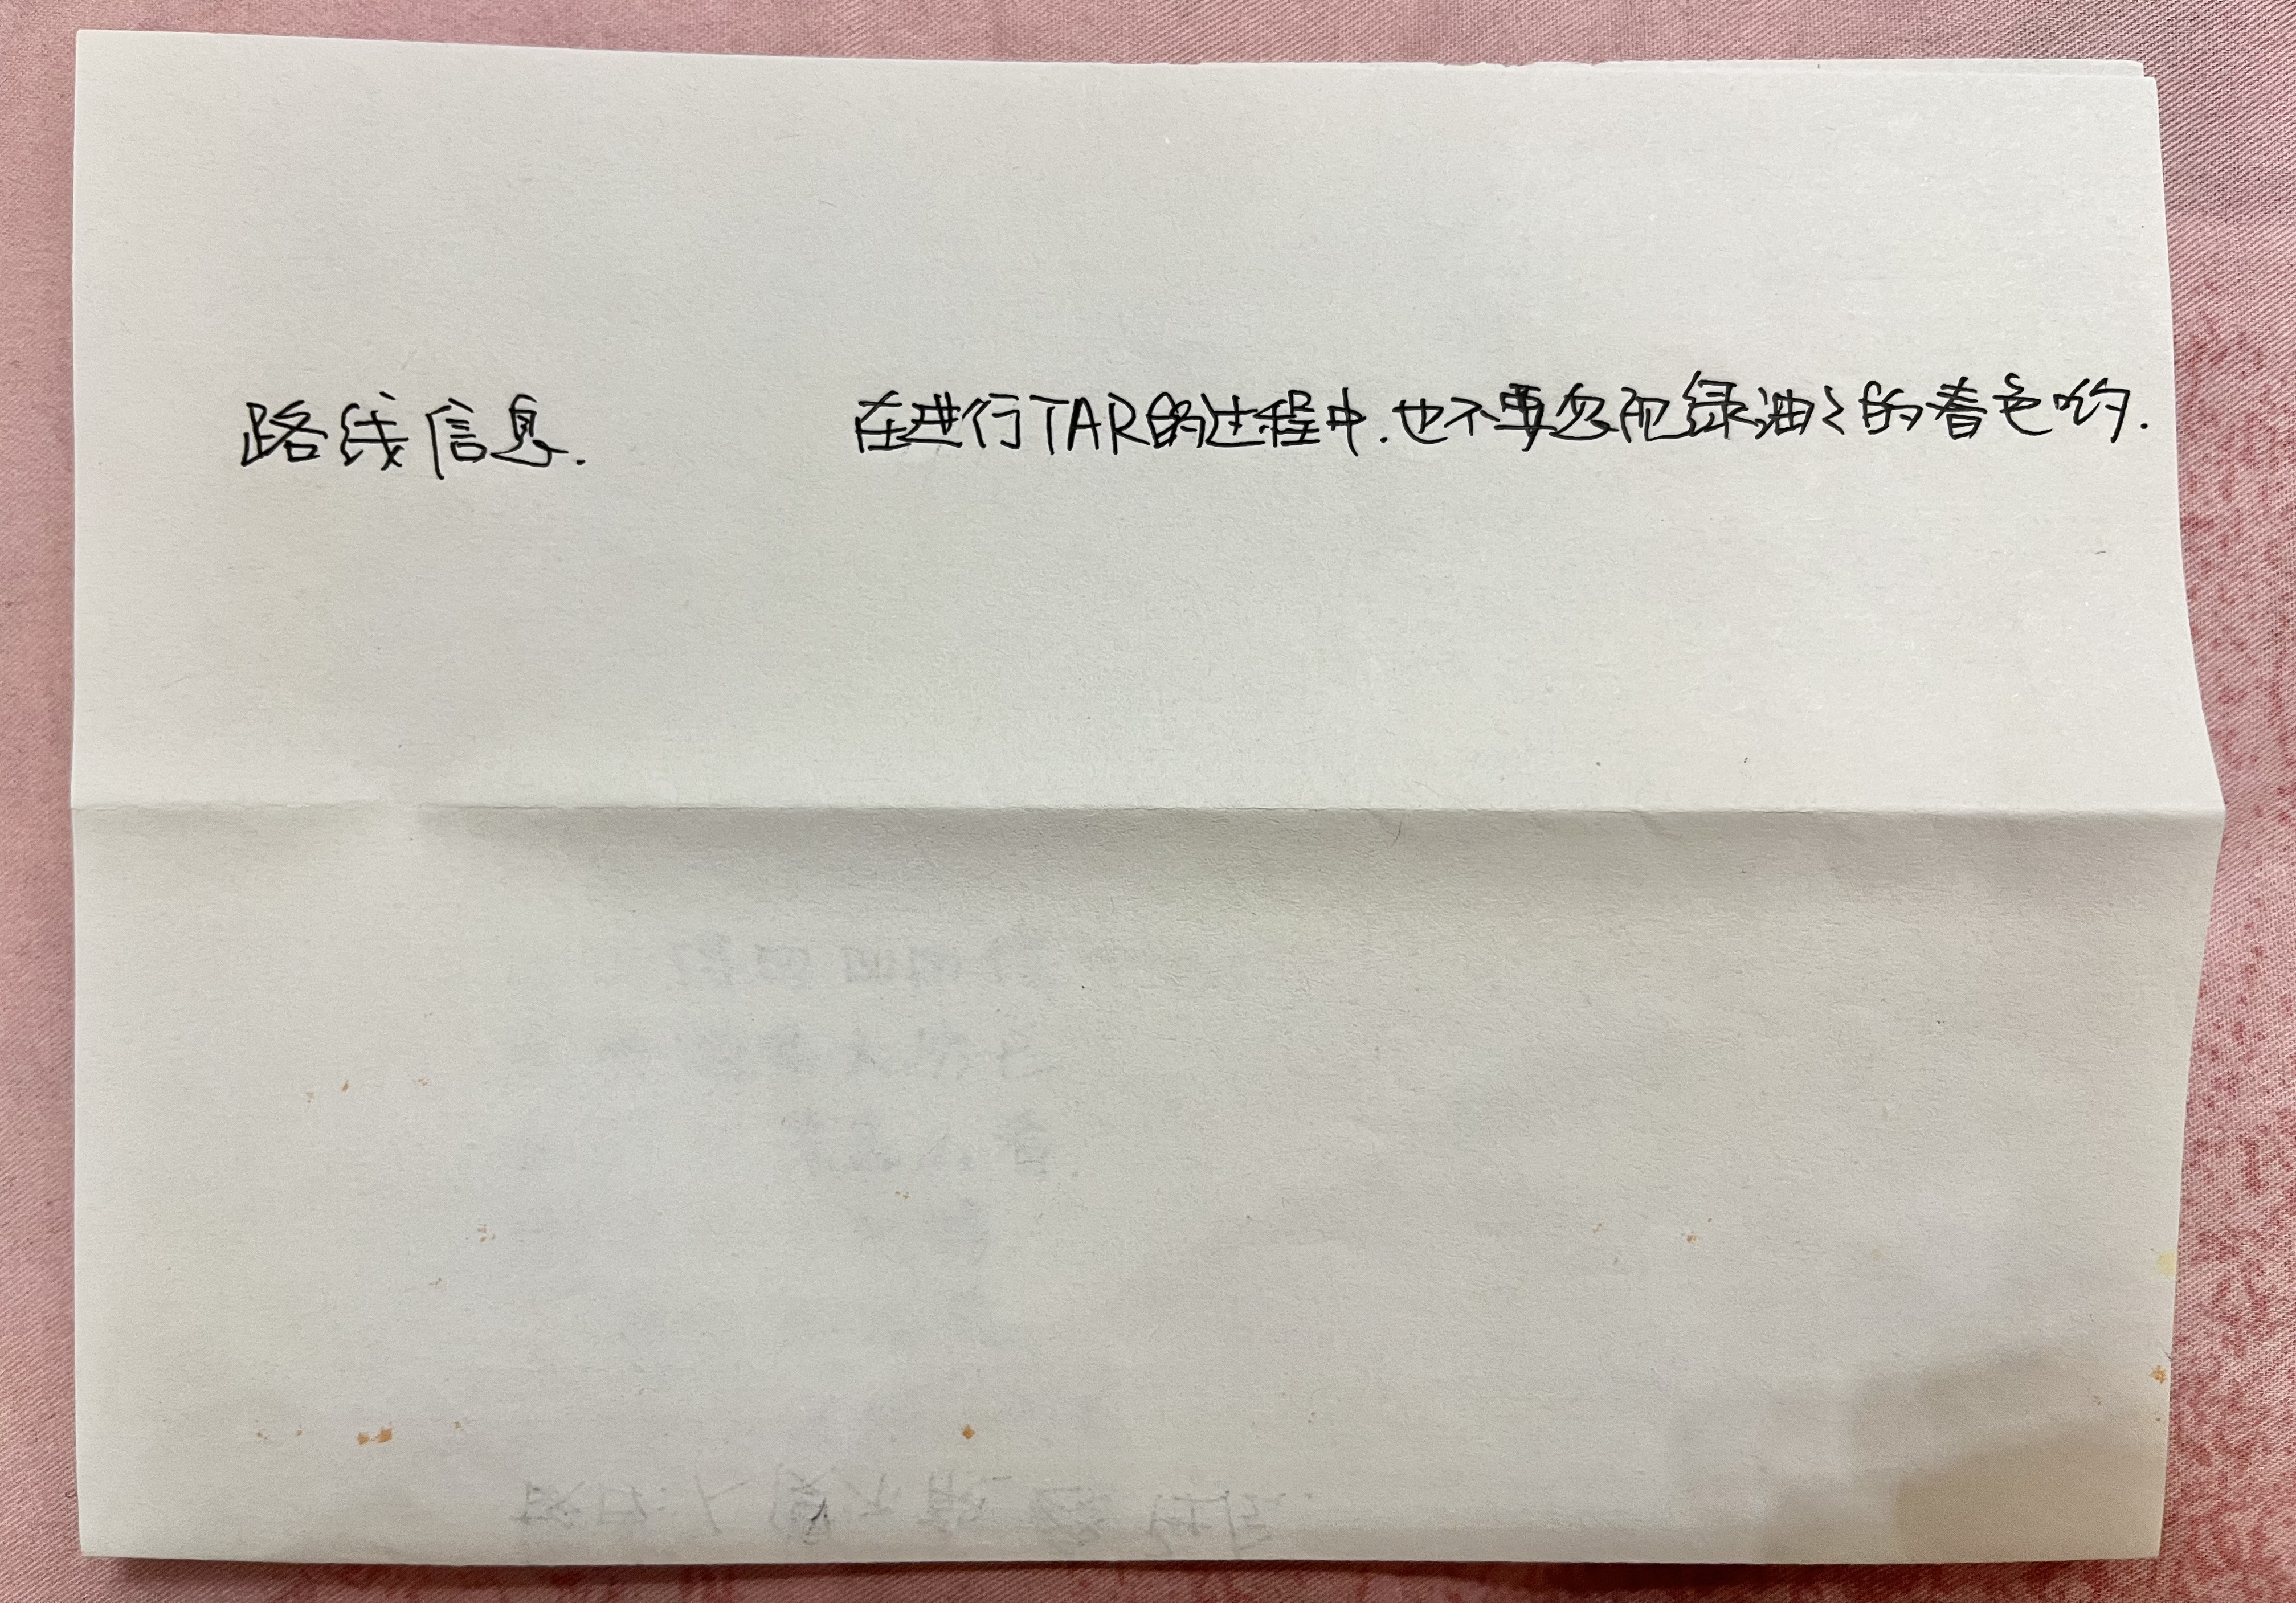 路线信息. 在进行TAR的过程中.也不要忽视绿油々的春色哟.